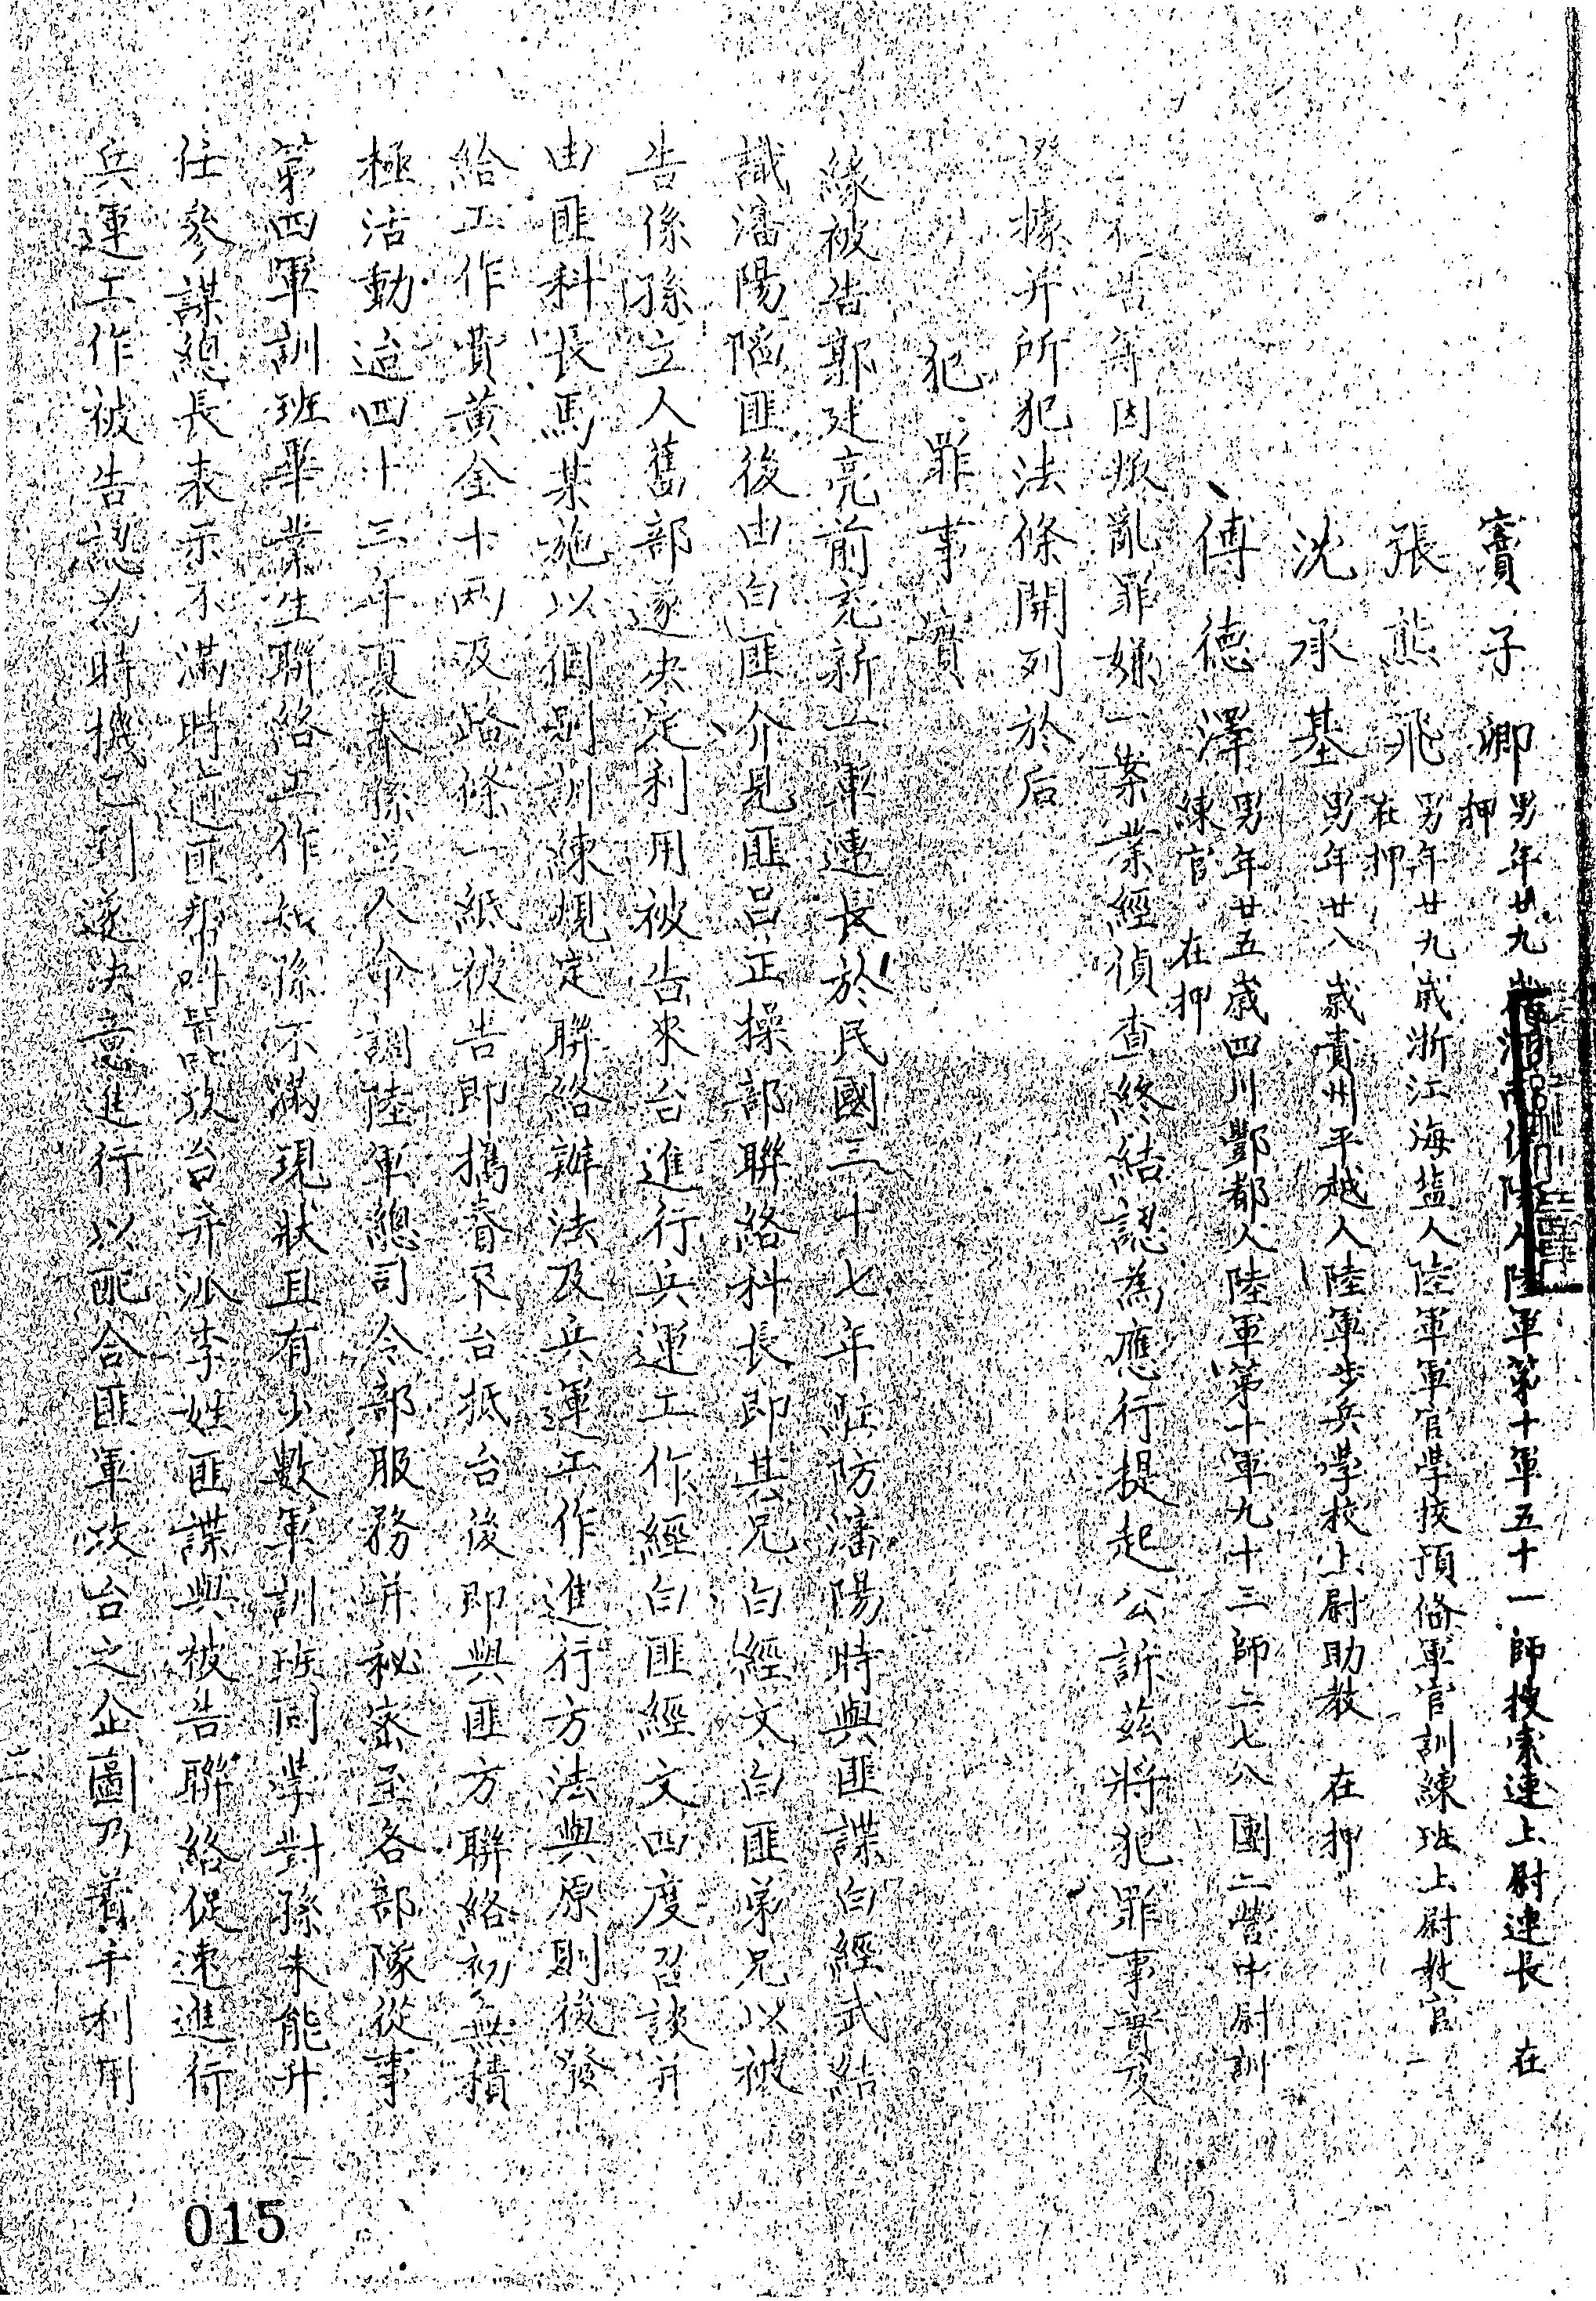 竇子卿 男年廿九歲湖南人陸軍第十軍五十一師搜索連上尉連長 在押
張熊飛 男年廿九歲浙江海塩人陸軍軍官學校預備軍官訓練班上尉教官 在押
沈承基 男年廿八歲貴州平越人陸軍步兵學校上尉助教 在押
傅德澤 男年廿五歲四川酆都人陸軍第十軍九十三師二七八團二營中尉訓練官 在押
被告等因叛亂罪嫌一案業經偵查終結認為應行提起公訴茲將犯罪事實及
證據并所犯法條開列於后
犯罪事實
緣被告郭廷亮前充新一軍連長於民國三十七年駐防瀋陽時與匪諜白經武結
識瀋陽陷匪後由白匪介見匪呂正操部聯絡科長即其兄白經文白匪弟兄以被
告係孫立人舊部遂决定利用被告來台進行兵運工作經白匪經文四度召談并
由匪科長馬某施以個別訓練規定聯絡辦法及兵運工作進行方法與原則後發
給工作費黃金十兩及路條一紙被告即携眷來台抵台後即與匪方聯絡初無積
極活動迨四十三年夏奉孫立人命調陸軍總司令部服務并秘密至各部隊從事
第四軍訓班畢業生聯絡工作知孫不滿現狀且有少數軍訓班同學對孫未能升
任參謀總長表示不滿時適匪幫叫囂攻台并派李姓匪諜與被告聯絡促速進行
兵運工作被告認為時機已到遂决意進行以配合匪軍攻台之企圖乃着手利用
三
015